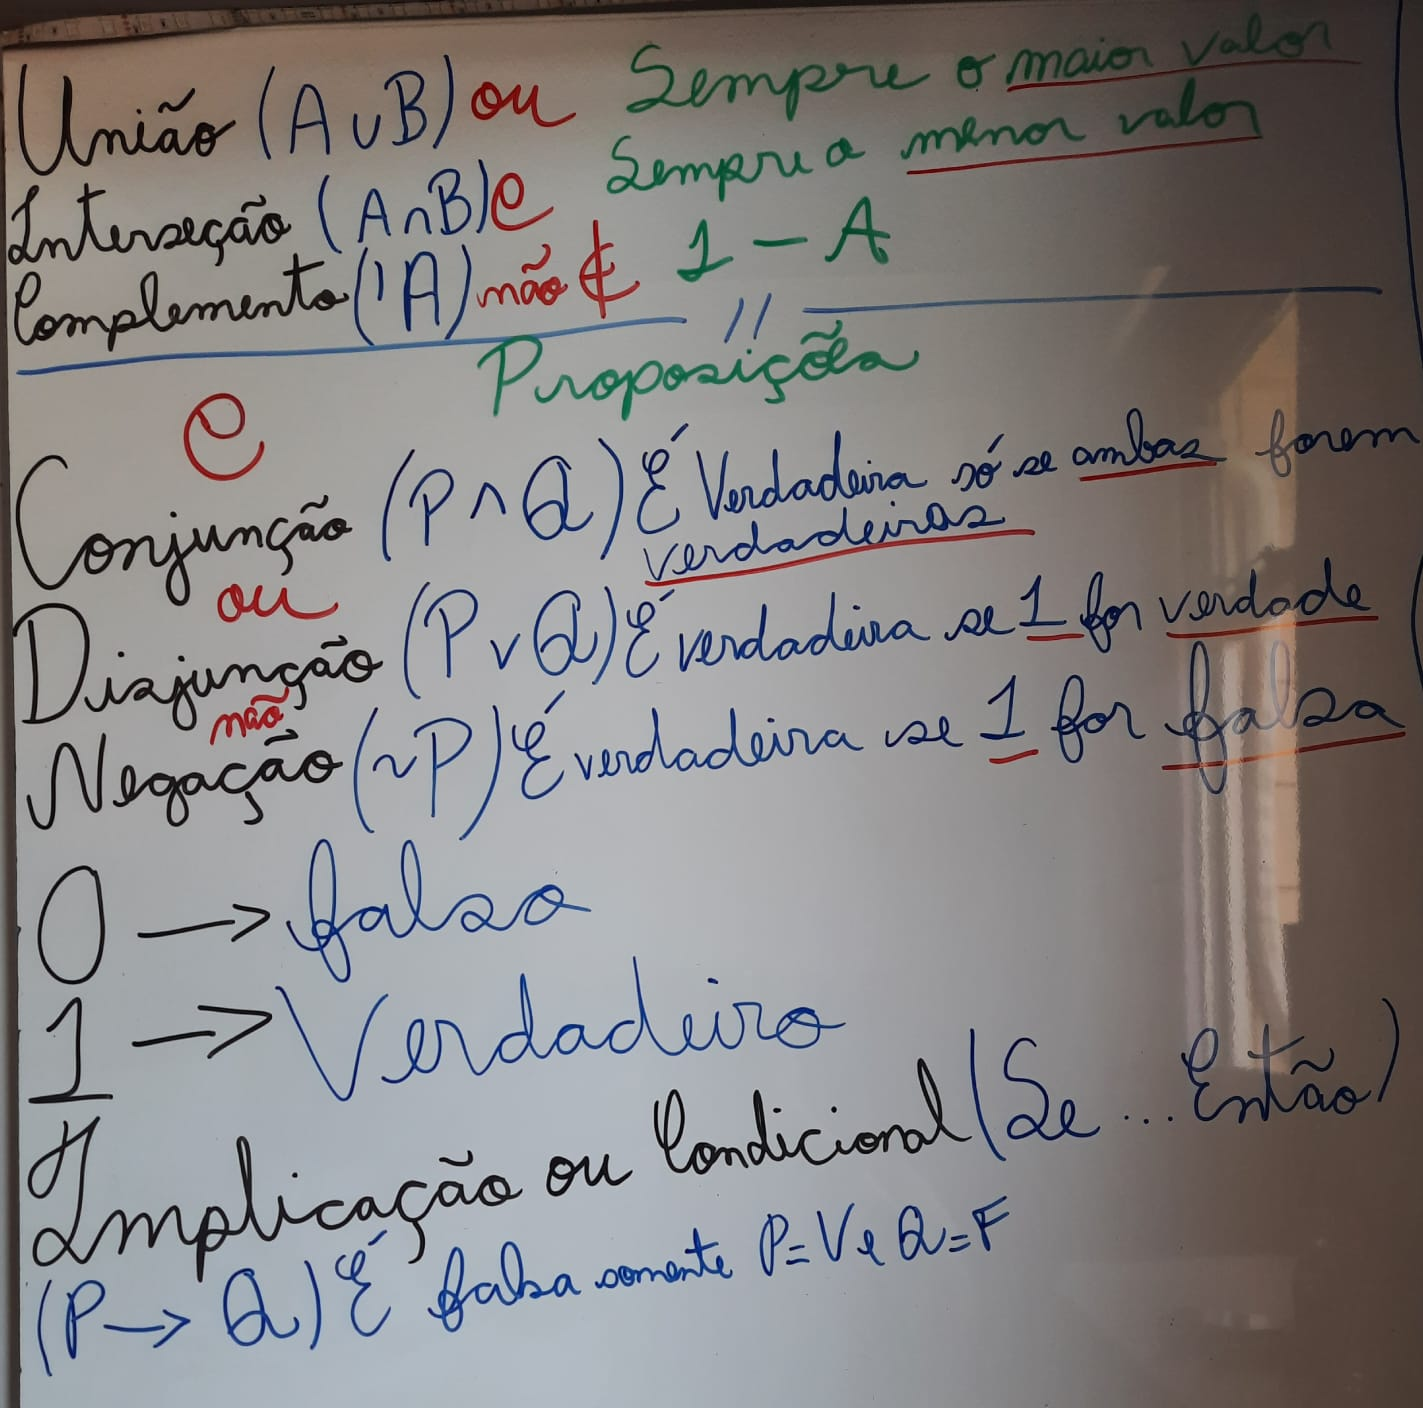 União (A∪B) ou Sempre o maior valor
Interseção (A∩B) e Sempre o menor valor
Complemento ('A) não ₵ 1 - A
//
Proposições
e
Conjunção (P ∧ Q) É Verdadeira só se ambas forem
verdadeiras
ou
Disjunção (P ∨ Q) É verdadeira se 1 for verdade
não
Negação (~P) É verdadeira se 1 for falsa
0 → falso
1 → Verdadeiro
Implicação ou Condicional (Se ... Então)
(P → Q) É falsa somente P=V e Q=F